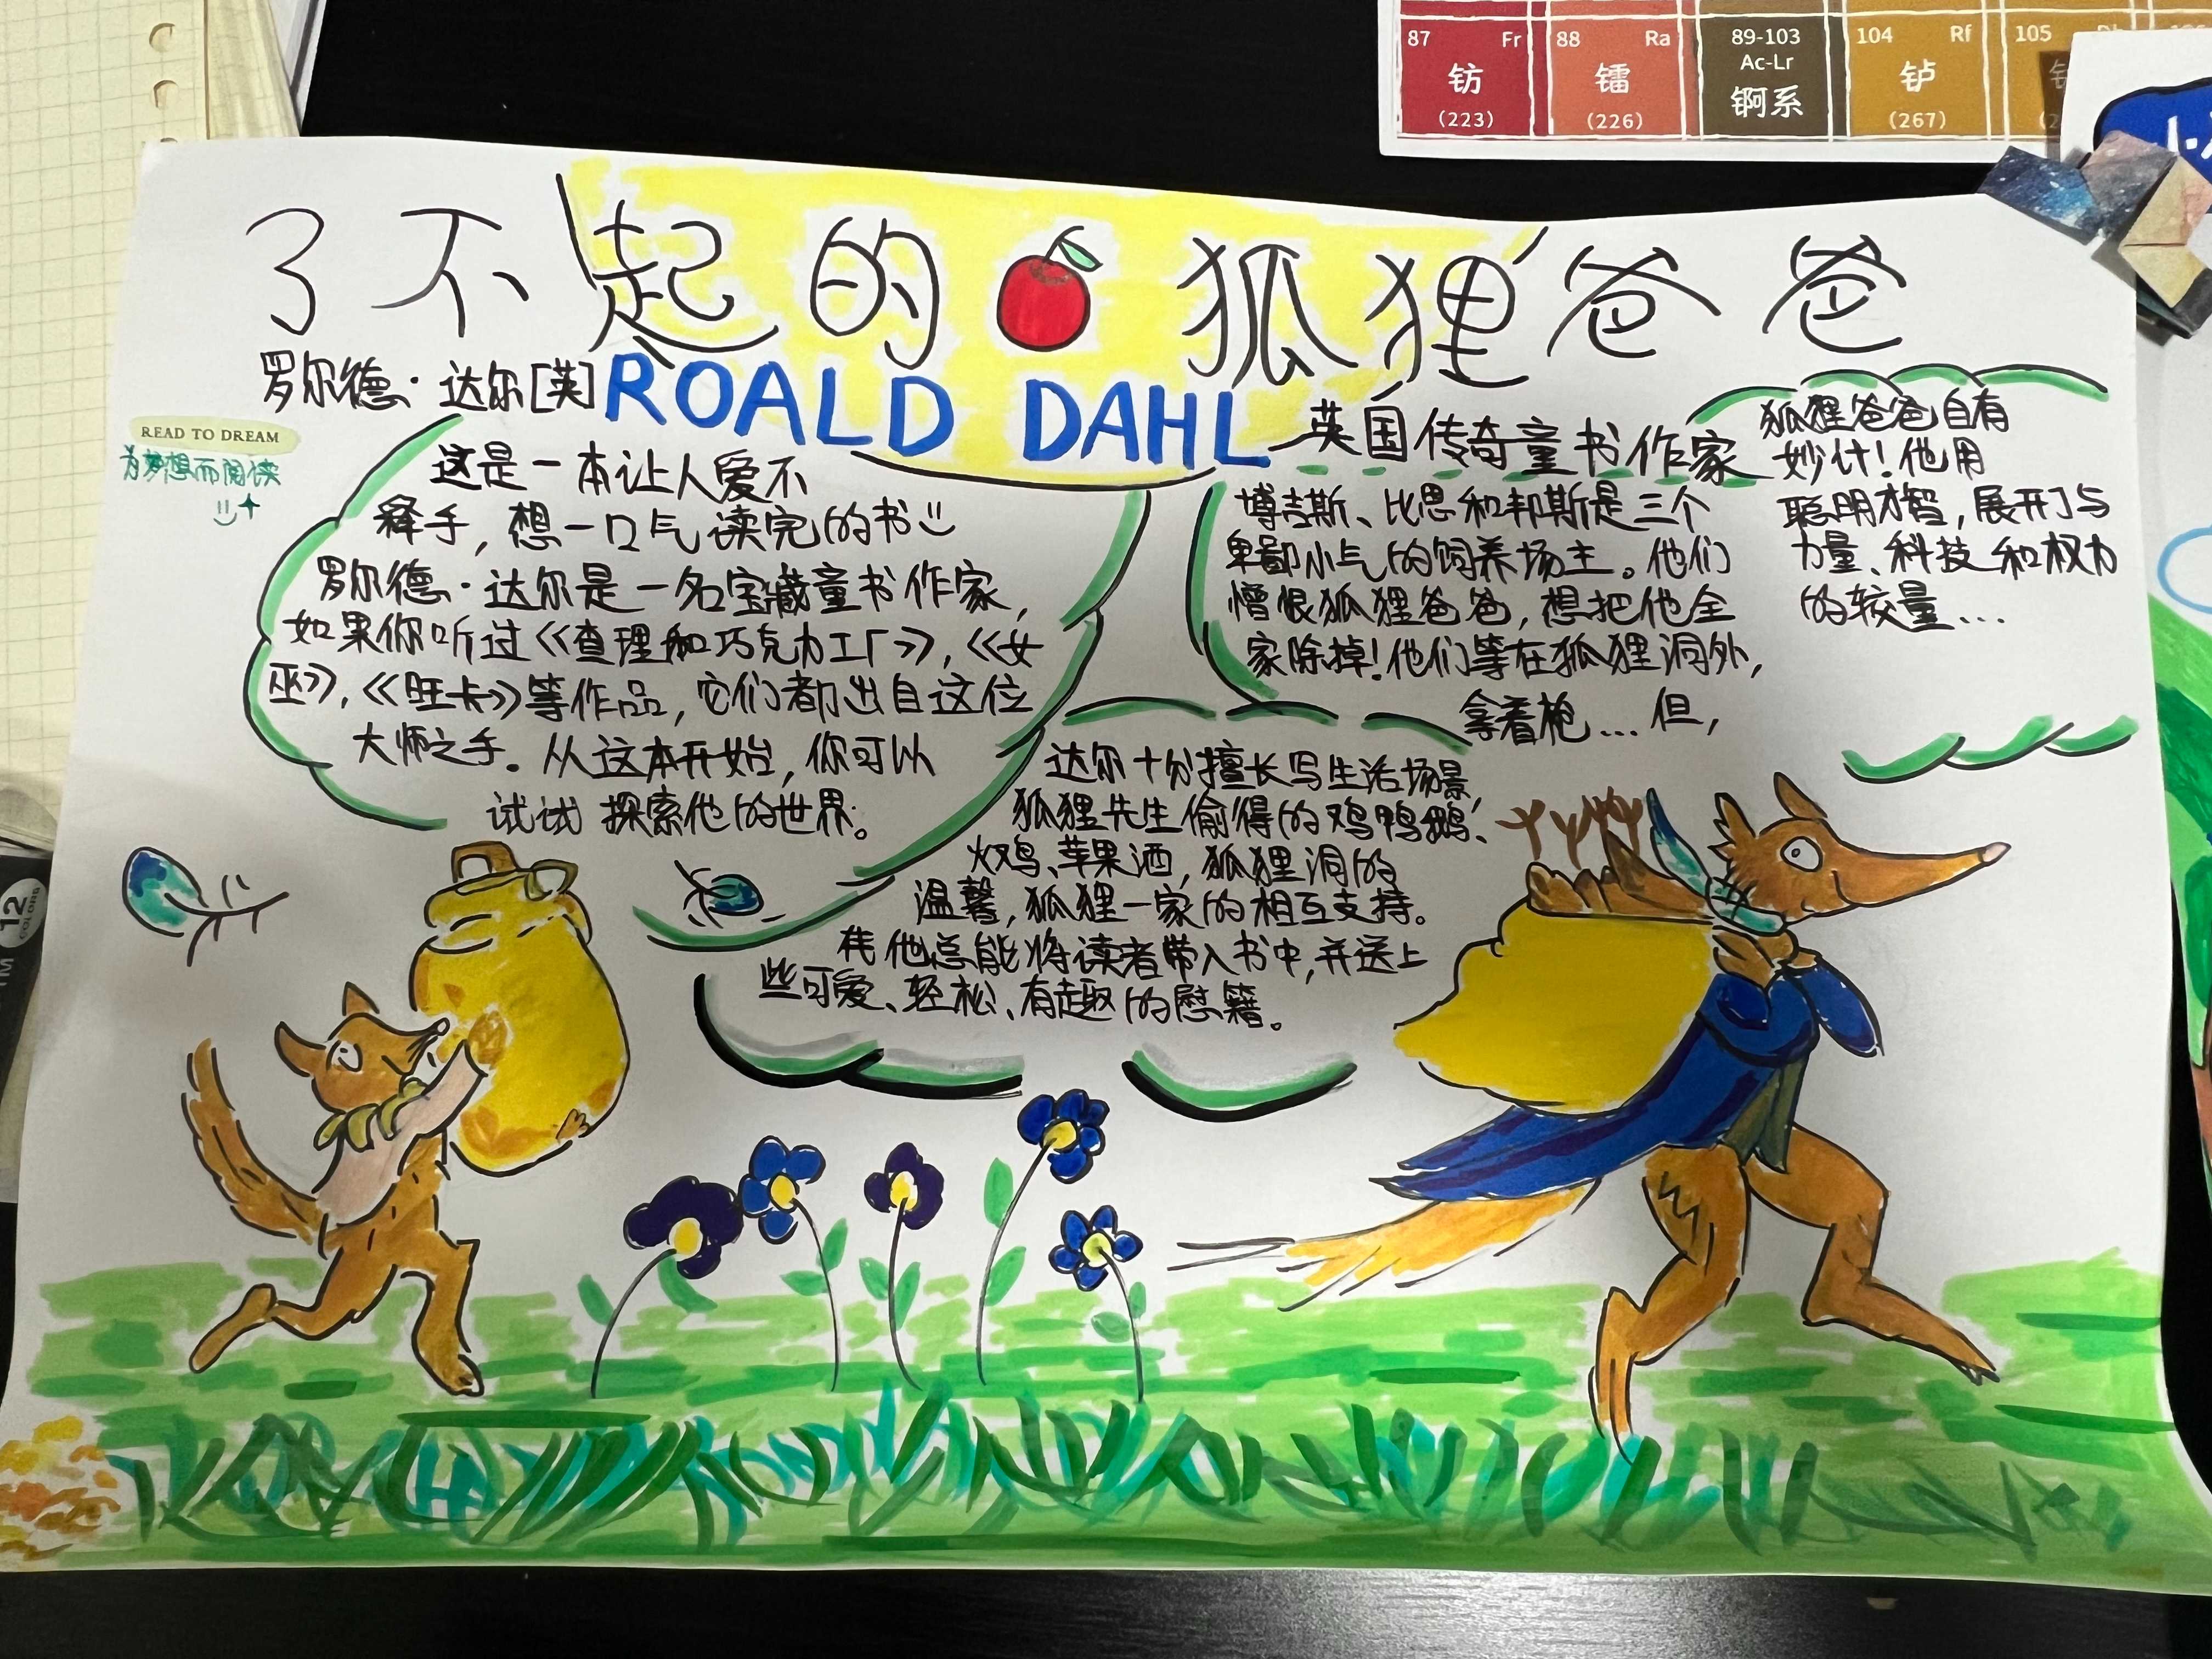 87 Fr
钫
(223)
88 Ra
镭
(226)
89-103
Ac-Lr
锕系
104 Rf
𬬻
(267)
105
了不起的狐狸爸爸
罗尔德·达尔[英]ROALD DAHL
英国传奇童书作家
READ TO DREAM
为梦想而阅读
这是一本让人爱不
释手,想一口气读完的书
罗尔德·达尔是一名宝藏童书作家,
如果你听过《查理和巧克力工厂》,《女
巫》,《旺卡》等作品,它们都出自这位
大师之手。从这本开始,你可以
试试探索他的世界。
博吉斯、比恩和邦斯是三个
卑鄙小气的饲养场主。他们
憎恨狐狸爸爸,想把他全
家除掉!他们等在狐狸洞外,
拿着枪...但,
狐狸爸爸自有
妙计!他用
聪明才智,展开了与
力量、科技和权力
的较量...
达尔十分擅长写生活场景,
狐狸先生偷得的鸡鸭鹅、
火鸡、苹果酒,狐狸洞的
温馨,狐狸一家的相互支持。
他总能将读者带入书中,并送上
些可爱、轻松、有趣的慰籍。
12
COLORS